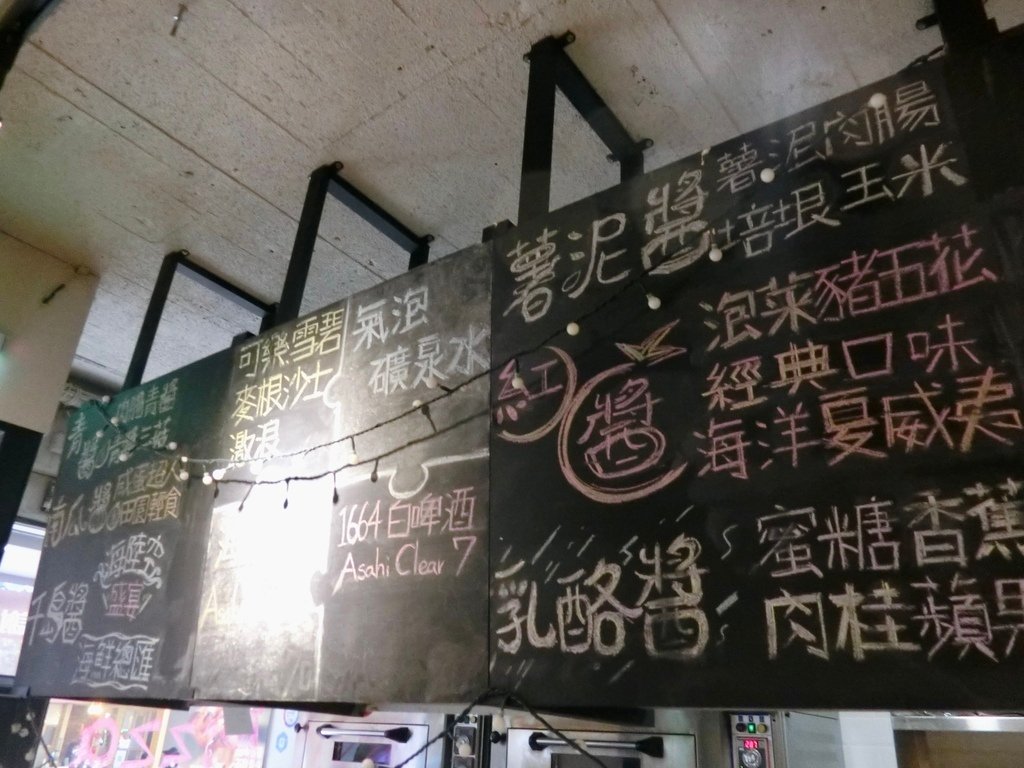 青醬
南瓜醬
鹹蛋超人
田園輕食
千島醬
海陸
盛宴
海鮮總匯
可樂 雪碧
麥根沙士
激浪
氣泡
礦泉水
1664 白啤酒
Asahi Clear 7
薯泥醬
薯泥肉腸
培根玉米
紅醬
泡菜豬五花
經典口味
海洋夏威夷
乳酪醬
蜜糖香蕉
肉桂蘋果
287